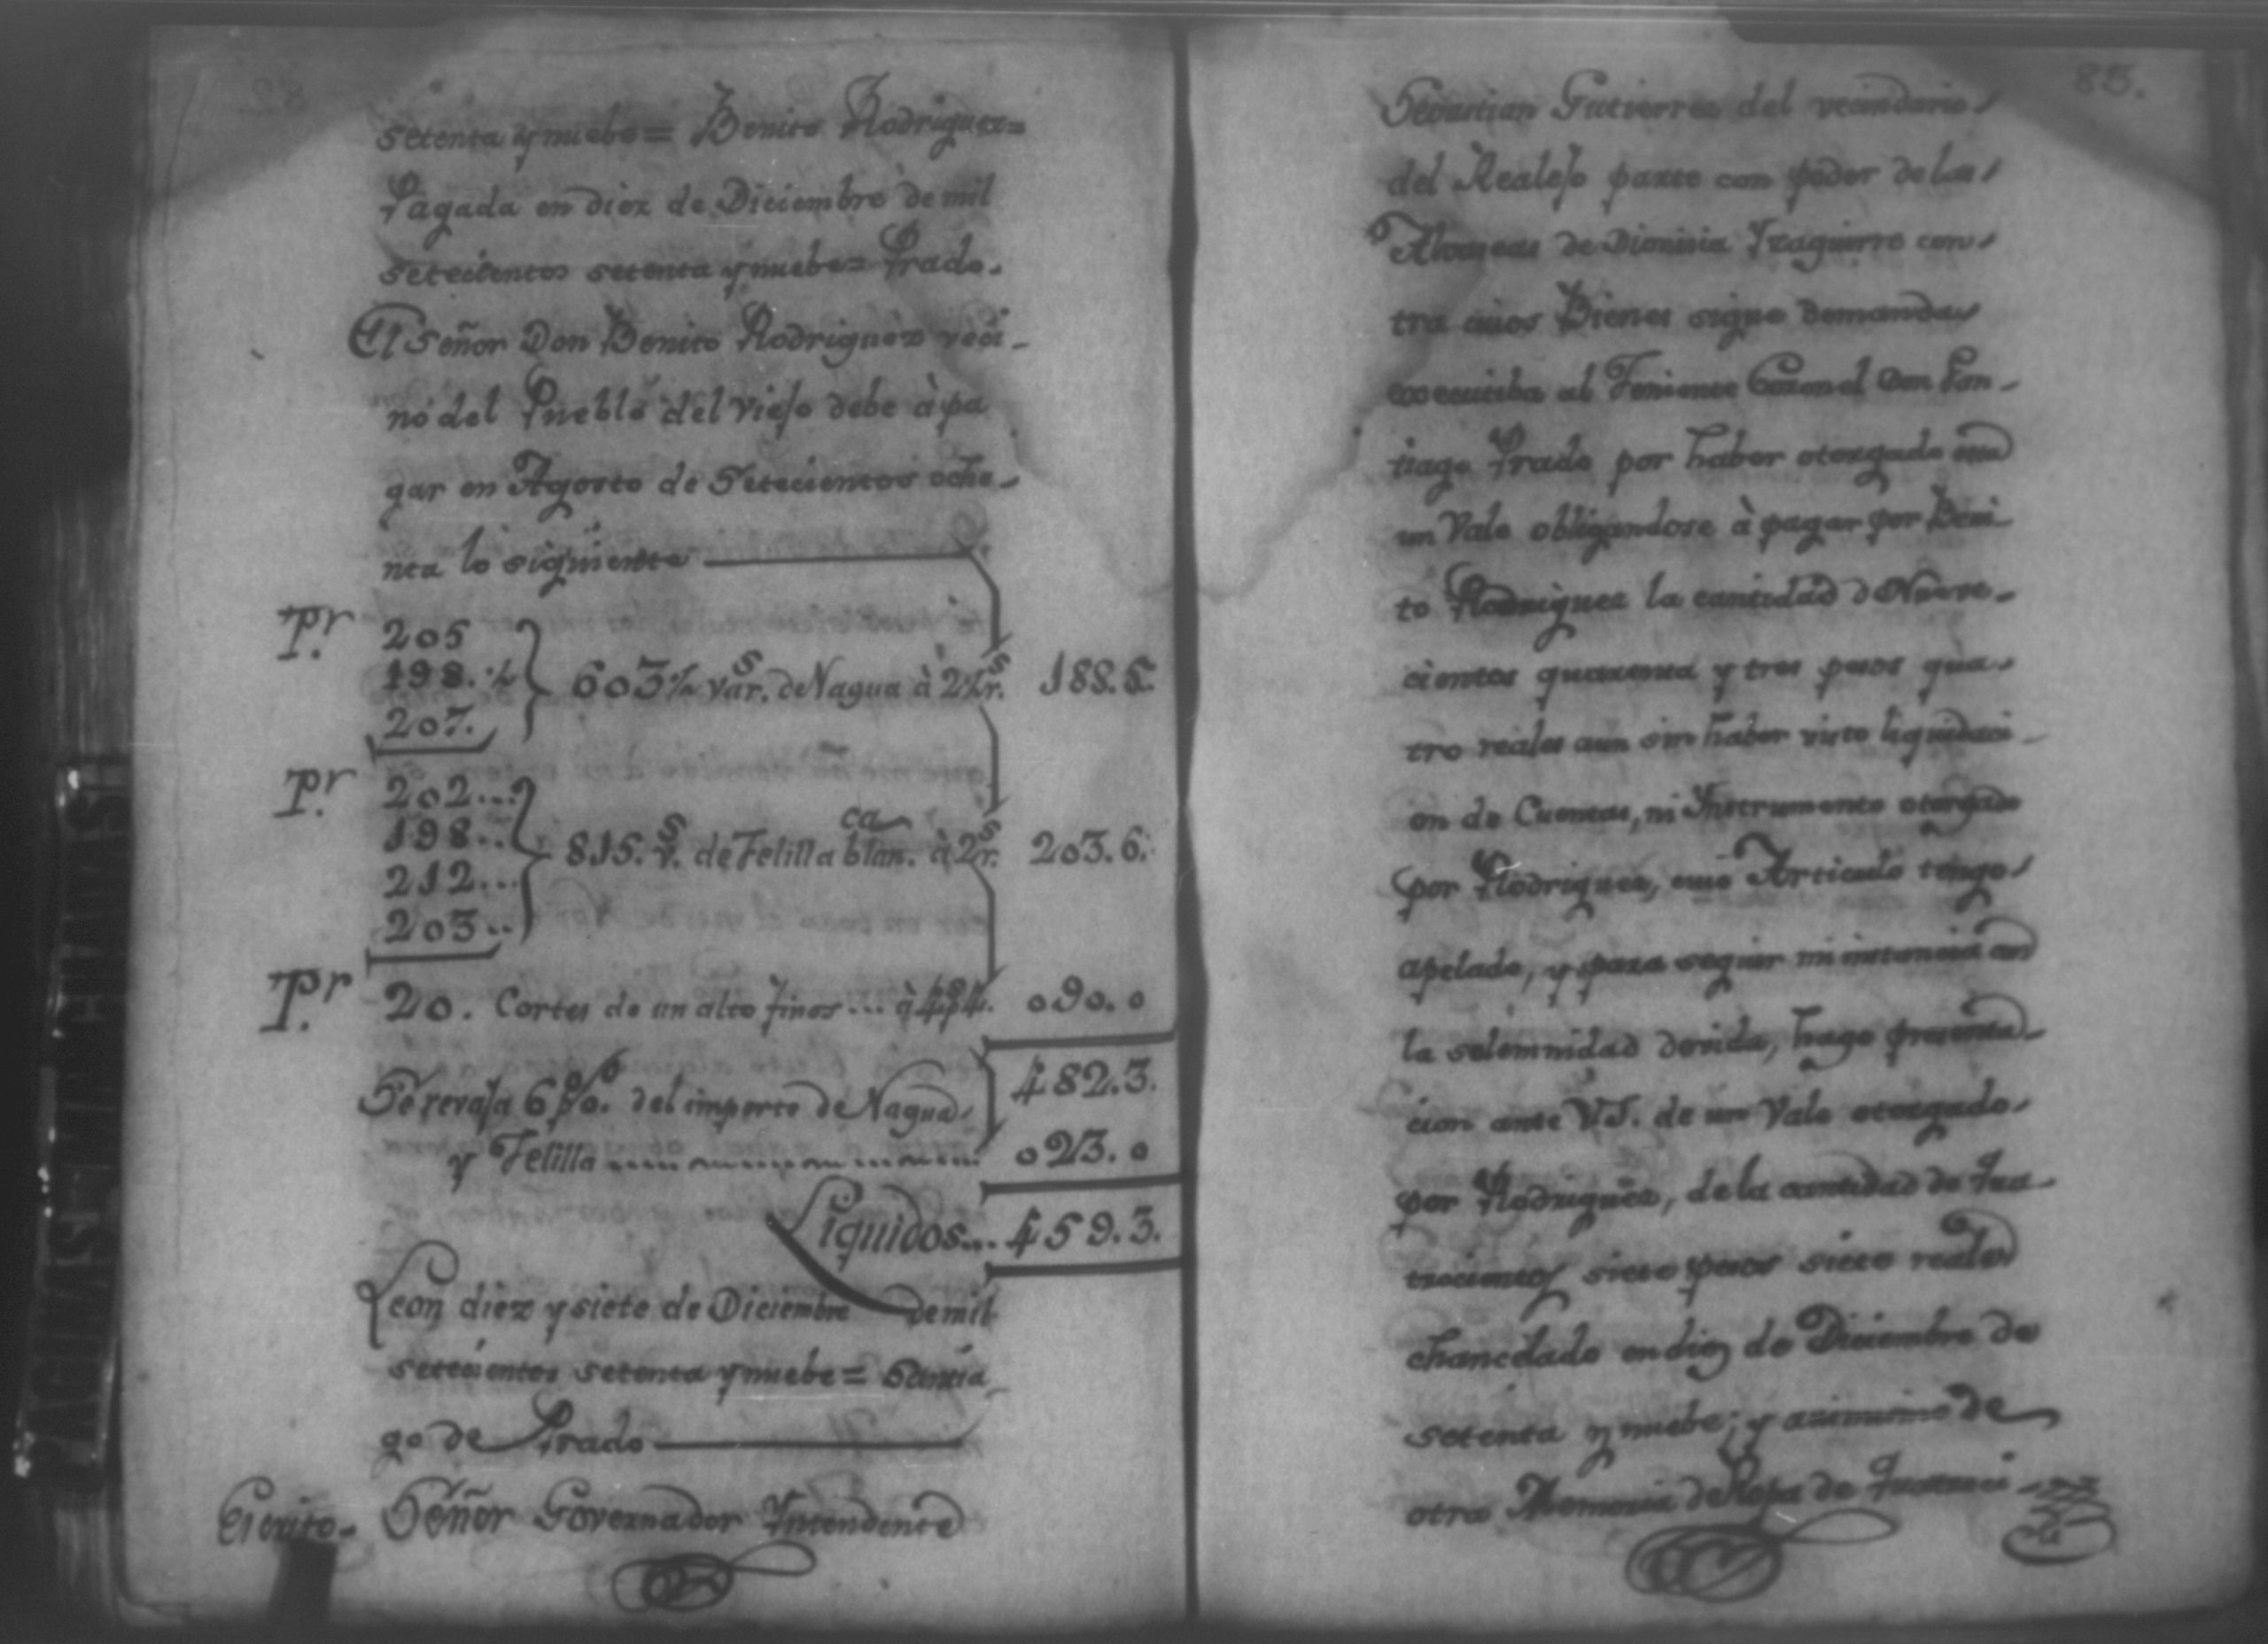 setenta y nuebe= Benito Rodriguez=
Pagada en diez de Diciembre de mil
setecientos setenta y nuebe= Prado.
El Señor Don Benito Rodriguez veci-
no del Pueblo del Viejo debe à pa
gar en Agosto de Setecientos oche-
nta lo siguiente
Pr. 205
198.½
207.
603½ vars. de Nagua à 2½rs. 188.5.
Pr. 202...
198..
212...
203..
815. vs. de Telilla blanca. à 2rs. 203.6.
Pr. 20. Cortes de un alto finos... à 4p4. 090.0
482.3.
Se revaja 6 p%. del importe de Nagua
y Telilla 023.0
Liquidos... 459.3.
Leon diez y siete de Diciembre de mil
setecientos setenta y nuebe= Santia
go de Prado
Escrito. Señor Governador Yntendente
85.
Sevastian Gutierrez del vecindario
del Realejo parte con poder de las
de Dionicia Yzaguirre con
tra cuios Bienes sigue demanda
executiba al Teniente Coronel Don San-
tiago Prado por haber otorgado
un Vale obligandose à pagar por Beni
to Rodriguez la cantidad de Nove-
cientos quarenta y tres pesos qua-
tro reales aun sin haber visto liquidaci-
on de Cuentas, ni Ynstrumento otorgado
por Rodriguez, cuio Articulo tengo
apelado, y para seguir mi instancia con
la solemnidad devida, hago presenta-
cion ante V.S. de un Vale otorgado
por Rodriguez, de la cantidad de Qua-
trocientos siete pesos siete reales
chancelado en diez de Diciembre de
setenta y nuebe; y asimismo de
otra Memoria de Ropa de